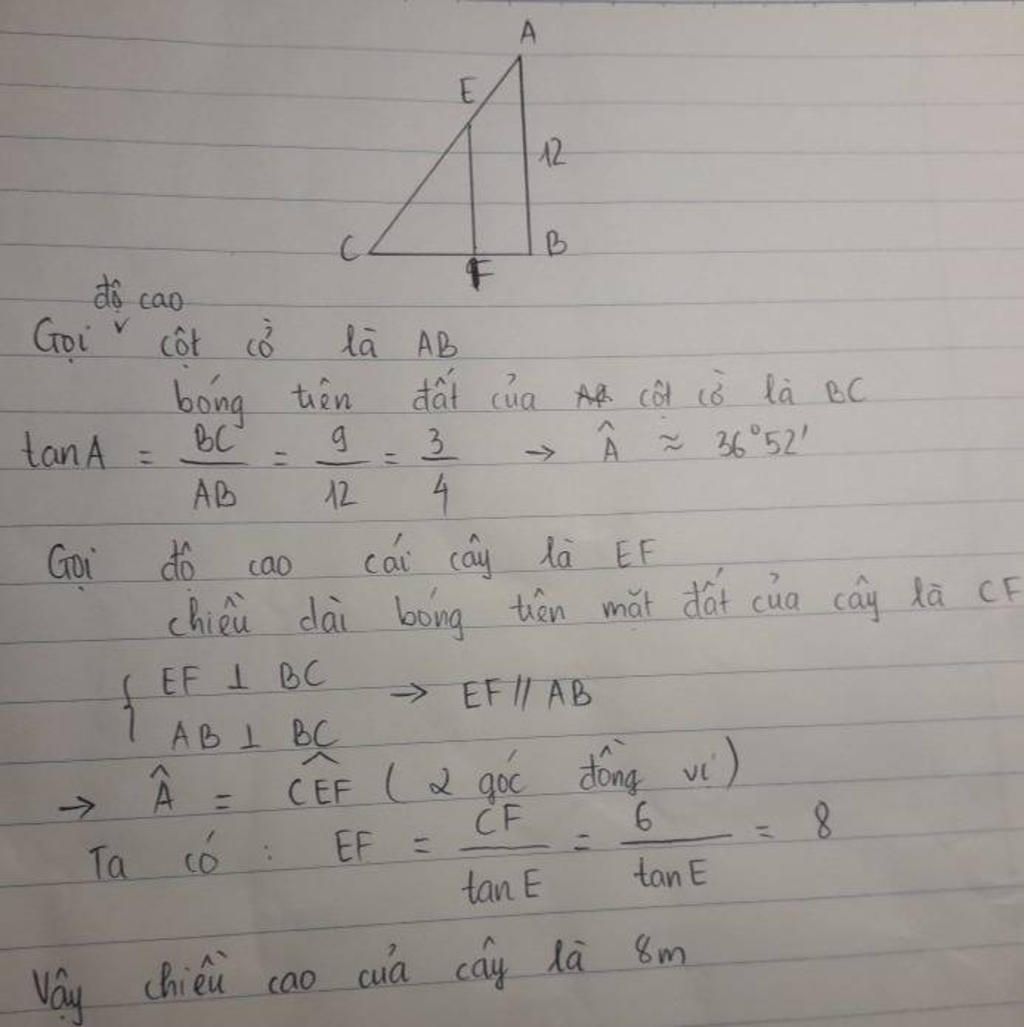 A
E
12
C
F
B
độ cao
Gọi ˅ cột cờ là AB
bóng trên đất của cột cờ là BC
tan A = BC/AB = 9/12 = 3/4 → Â ≈ 36°52'
Gọi độ cao cái cây là EF
chiều dài bóng trên mặt đất của cây là CF
{ EF ⊥ BC → EF // AB
AB ⊥ BC
→ Â = CEF̂ ( 2 góc đồng vị )
Ta có : EF = CF/tan E = 6/tan E = 8
Vậy chiều cao của cây là 8m